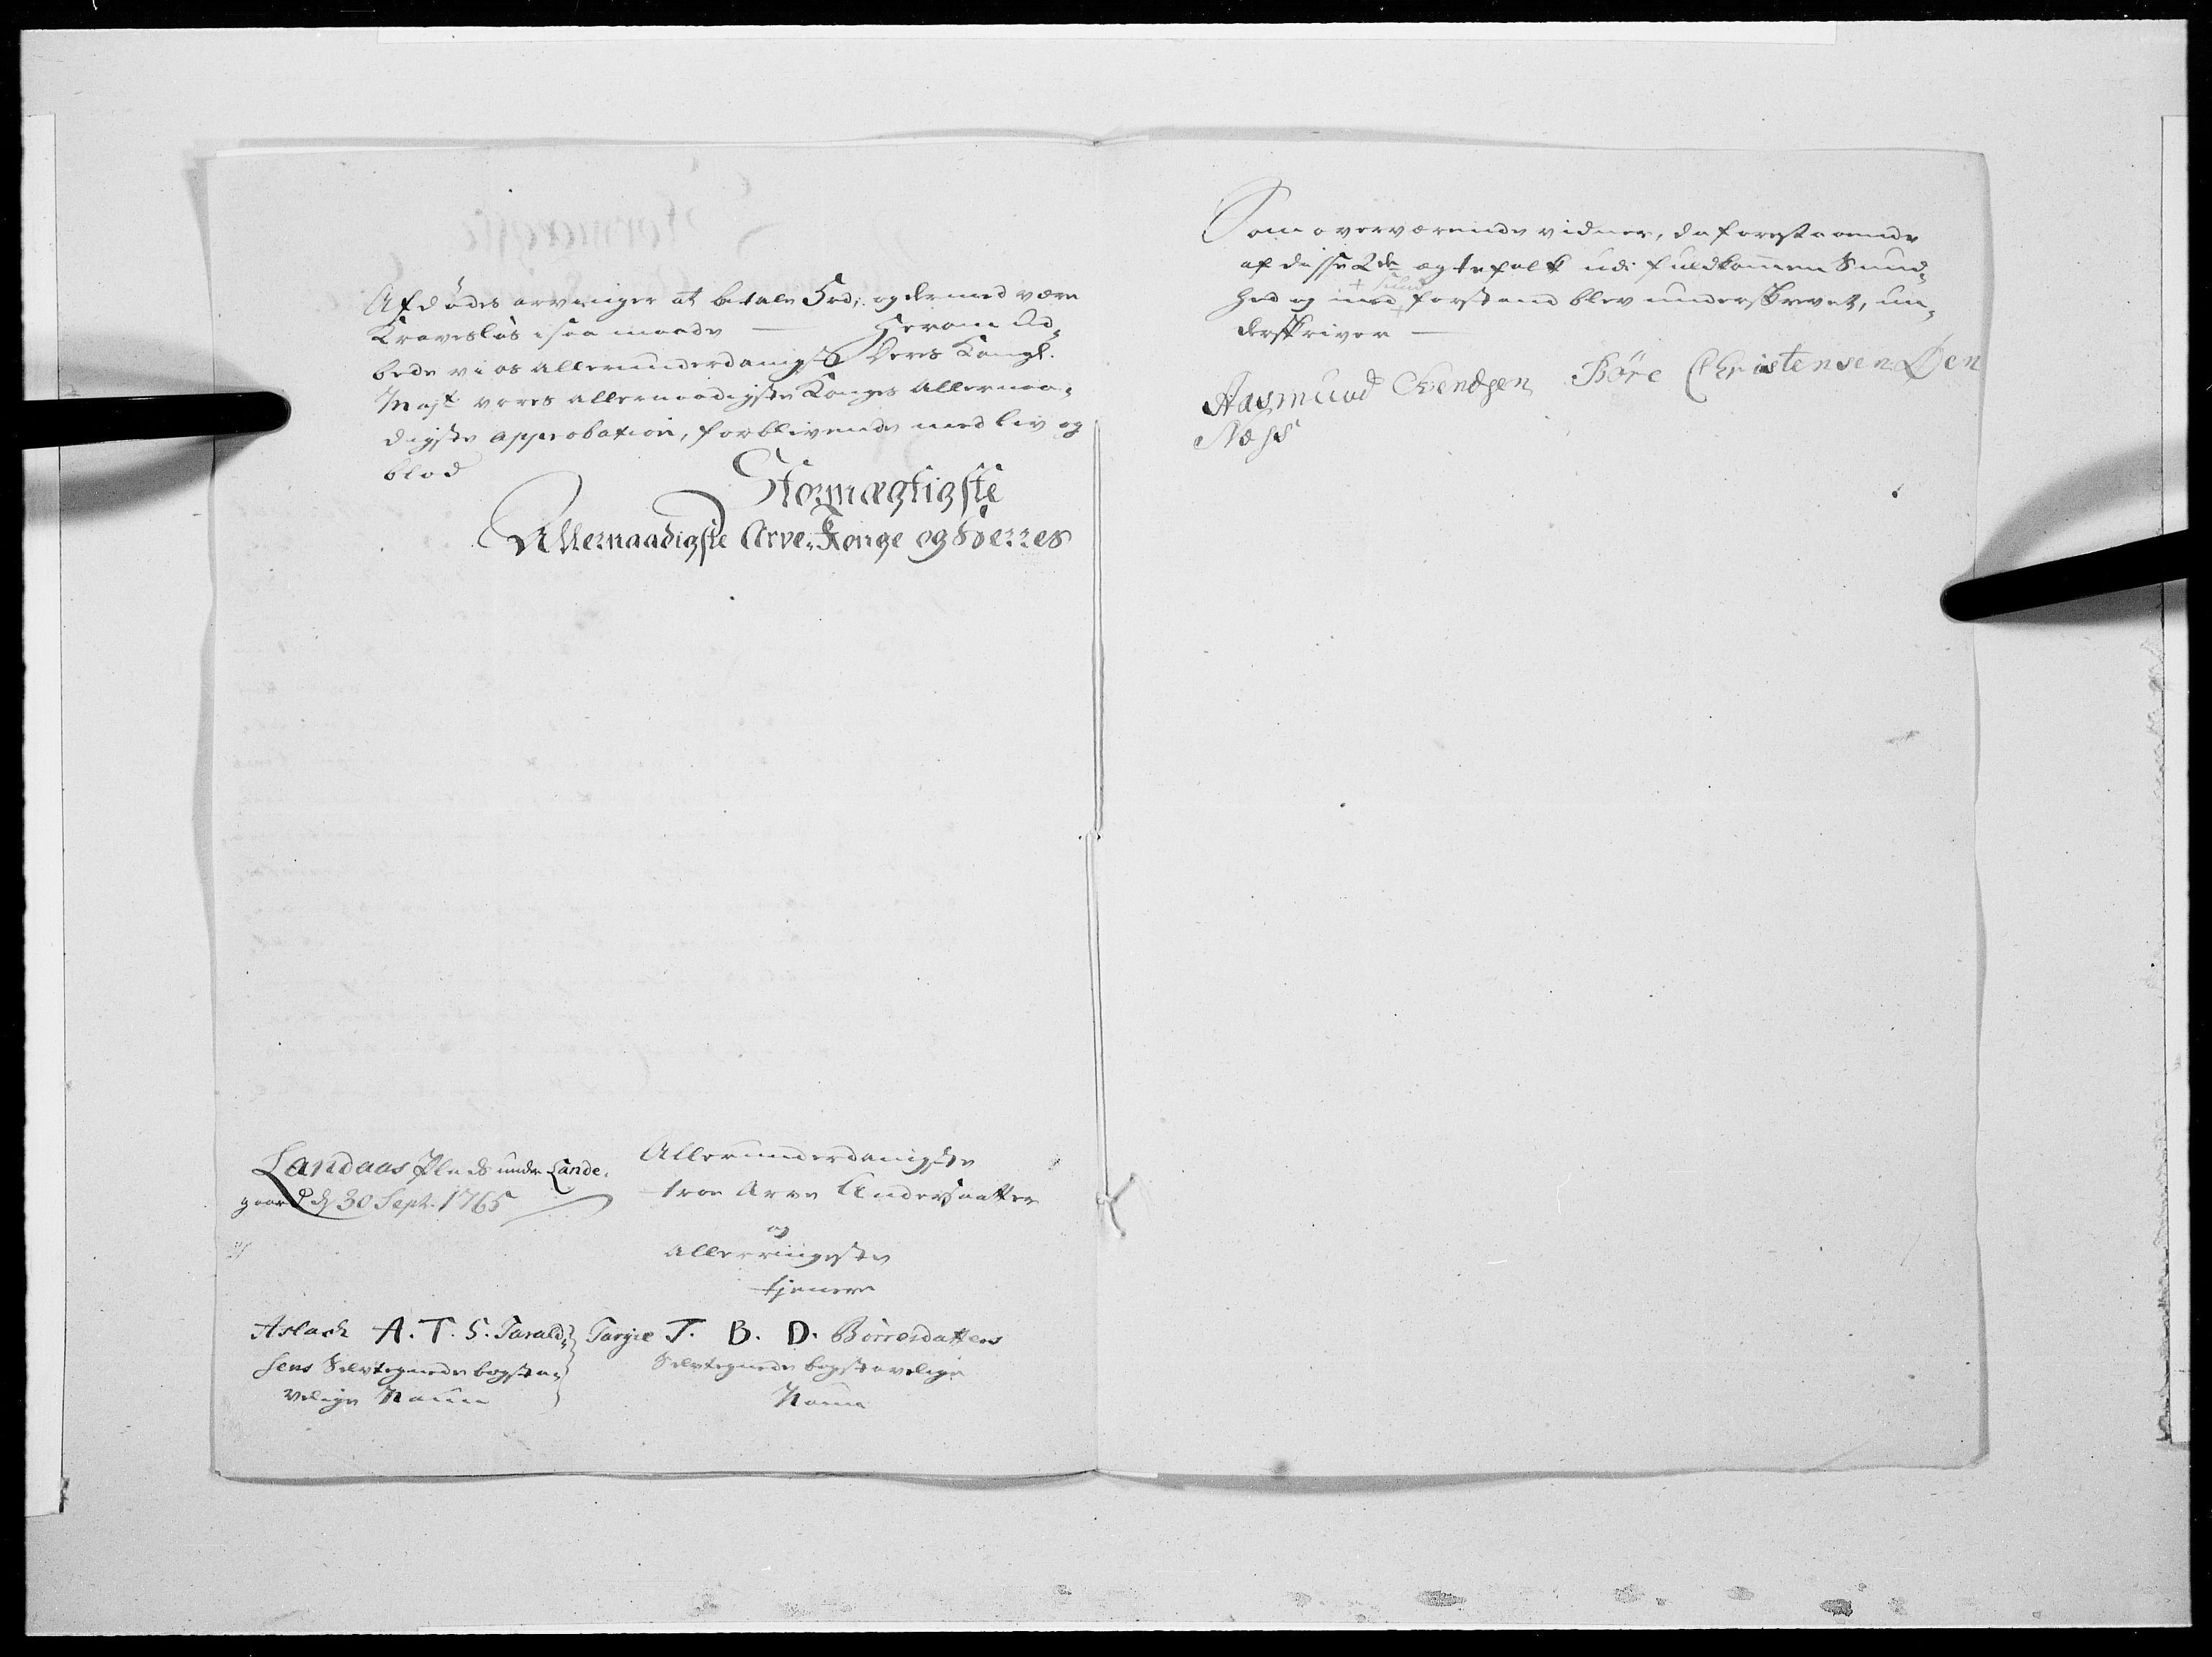 Afdödes arvinger at betale 5 rd: og dermed være
Kravesløs i saa maade — Herom ud-
bede vi os allerunderdanigst Deres Kongl.
Majt vores allernaadigste Konges Allernaa-
digste approbation, forblivende med liv og
blod
Stormægtigste
Allernaadigste Arve-Konge og Herres
Landaas Plads under Lande-
gaard d 30 Sept. 1765
Allerunderdanigste
troe Arve Undersaatter
og
allerringeste
tjenere
Aslach A. T. S. Tarald-
sens Selvtegnede bogsta-
velige Naun
Targie T. B. D. Börresdatters
Selvtegnede bogstavelige
Naun
Som overværende vidner, da forestaaende
af disse 2de ægtefolk udi fuldkommen Sund-
hed og med + sund + forstand blev underskrevet, un-
derskriver —
Aasmund Svendsen Böre Christensen Øen
Næss